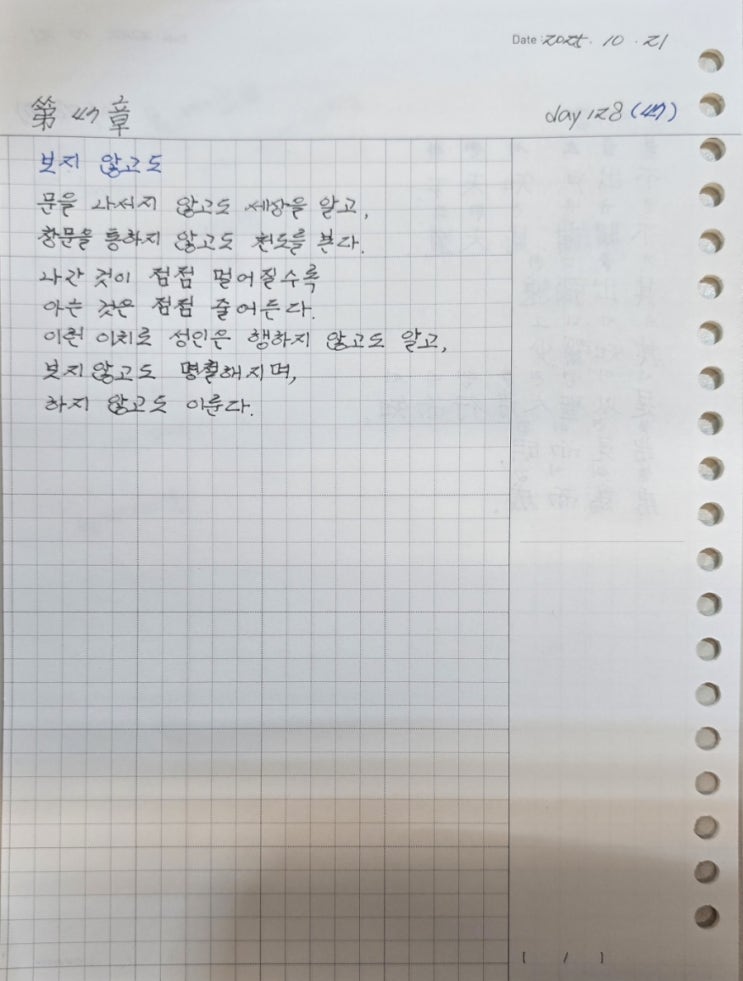 Date : 2025. 10. 21
第 47 章
day 128 (47)
보지 않고도
문을 나서지 않고도 세상을 알고,
창문을 통하지 않고도 천도를 본다.
나간 것이 점점 멀어질수록
아는 것은 점점 줄어든다.
이런 이치로 성인은 행하지 않고도 알고,
보지 않고도 명철해지며,
하지 않고도 이룬다.
[ / ]